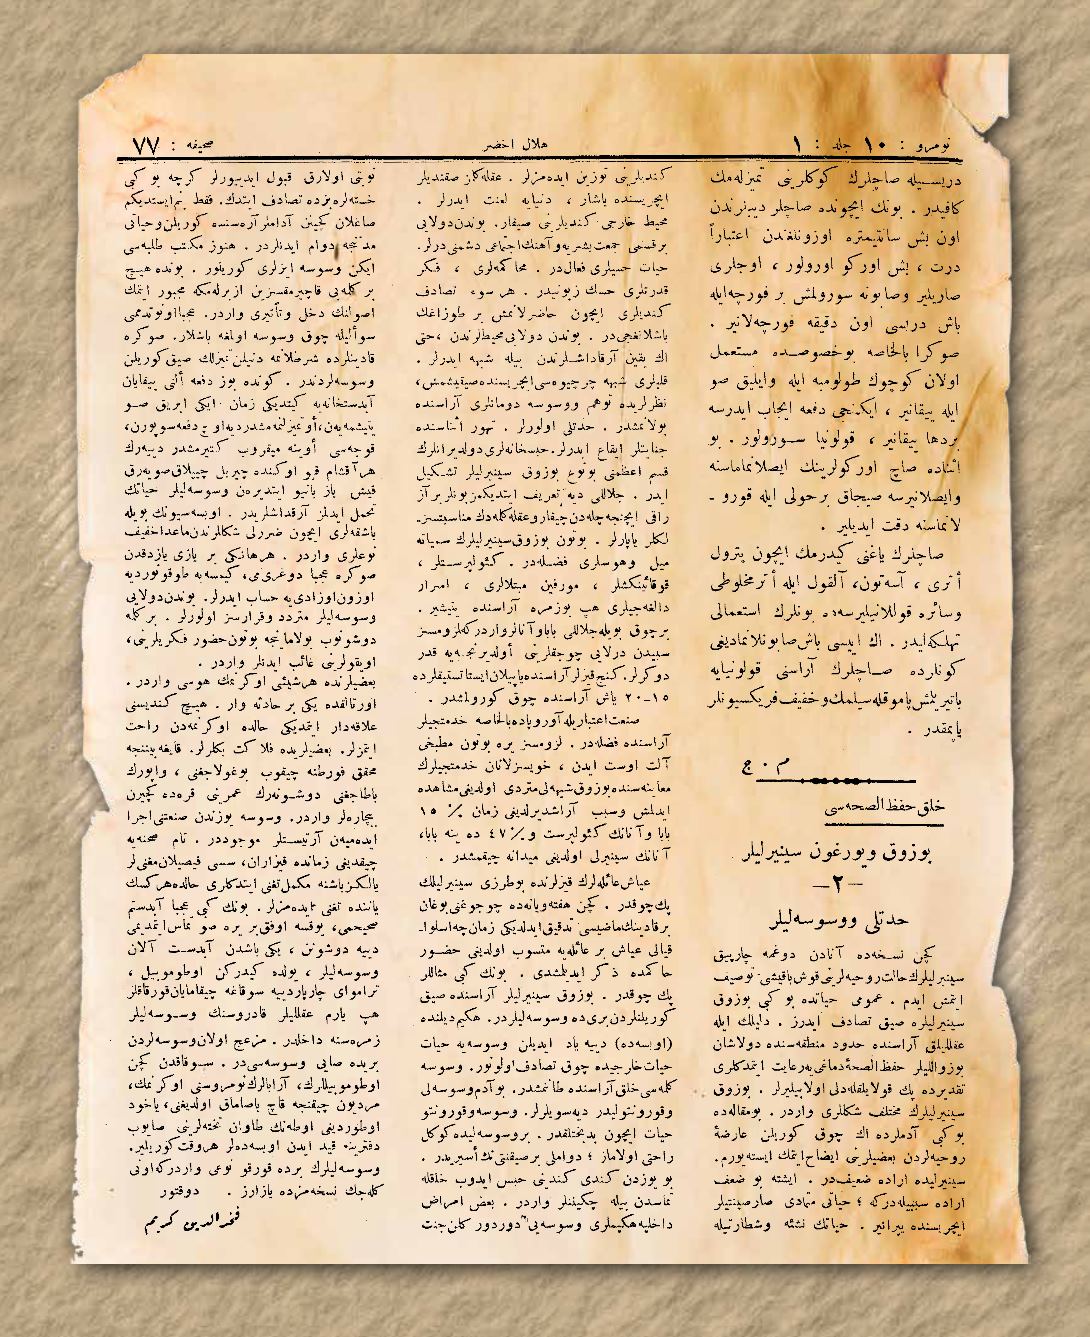 نومرو : ١٠ جلد : ١
هلال اخضر
صحیفه : ٧٧
دریسیله صاچلرك كوكلرینی تمیزله‌مك
كافیدر . بونك ایچونده صاچلر دیبرندن
اون بش سانتیمتره اوزونلغندن اعتباراً
درت ، بش اوركو اورولور ، اوجلری
صاریلیر وصابونه سورولمش بر فورچه‌ایله
باش دریسی اون دقیقه فورچه‌لانیر .
صوكرا بالخاصه بوخصوصده مستعمل
اولان كوچوك طولومبه ایله وایلیق صو
ایله ییقانیر ، ایكنجی دفعه ایجاب ایدرسه
بردها ییقانیر ، قولونیا سورولور . بو
اثناده صاچ اوركولرینك ایصلانماماسنه
وایصلانیرسه صیجاق برحولی ایله قورو ـ
لانماسنه دقت ایدیلیر .
صاچلرك یاغنی كیدرمك ایچون پترول
أتری ، آسه‌تون، آلقول ایله أتر مخلوطی
وسائره قوللانیلیرسه‌ده بونلرك استعمالی
تهلكه‌لیدر . اك اییسی باش صابونلانمادیغی
كونلرده صاچلرك آراسنی قولونیایه
باتیریلمش پاموقله سیلمك وخفیف فریكسیونلر
یاپمقدر .
م . ج
خلق حفظ الصحه‌سی
بوزوق ویورغون سینیرلیلر
—٢—
حدتلی ووسوسه‌لیلر
كچن نسخه‌ده آنادن دوغمه چارپیق
سینیرلیلرك حالت روحیه‌لرینی قوش باقیشی توصیف
ایتمش ایدم . عمومی حیاتده بو كبی بوزوق
سینیرلیلره صیق تصادف ایدرز . دلیلك ایله
عقللیلق آراسنده حدود منطقه‌سنده دولاشان
بوزوقلیلر حفظ الصحهٔ دماغی‌یه رعایت ایتمدكلری
تقدیرده پك قولایلقله دلی اولابیلیرلر . بوزوق
سینیرلیلرك مختلف شكللری واردر . بومقاله‌ده
بو كبی آدملرده اك چوق كوریلن عارضهٔ
روحیه‌لردن بعضیلرینی ایضاح ایتمك ایسته‌یورم.
سینیرلیده اراده ضعیف‌در . ایشته بو ضعف
اراده سببیله‌دركه ؛ حیاتی متمادی صارصینتیلر
ایچریسنده یپرانیر . حیاتك نشئه وشطارتیله
كندیلرینی توزین ایده‌مزلر . عقله‌كلمز صقنتیلر
ایچریسنده یاشار ، دنیایه لعنت ایدرلر .
محیط خارجی كندیلرینی صیقار. بوندن دولایی
برقسمی جمعیت بشریه وآهنك اجتماعی دشمنی‌درلر.
حیات حسیلری فعال‌در . محاكمه‌لری ، فكر
قدرتلری حسك زبونیدر . هر سوء تصادف
كندیلری ایچون حاضرلانمش بر طوزاغك
باشلانغجی‌در . بوندن دولایی محیطلرندن ،حتی
اك یقین آرقداشلرندن بیله شبهه ایدرلر .
قلبلری شبهه چرچیوه‌سی ایچریسنده صیقیشمش،
نظرلریده توهم ووسوسه دومانلری آراسنده
بولانمشدر . حدتلی اولورلر . تهور اثناسنده
جنایتلر ایقاع ایدرلر. حبسخانه‌لری دولدیرانلرك
قسم اعظمنی بونوع بوزوق سینیرلیلر تشكیل
ایدر . جلاللی دیه تعریف ایتدیكمز بونلر بر آز
راقی ایچنجه چله‌دن چیقار وعقله كلمه‌دك مناسبتسز‌ـ
لكلر یاپارلر . بوتون بوزوق سینیرلیلرك سمیاته
میل وهوسلری فضله‌در . كئولپرستلر ،
قوقائینكشلر ، مورفین مبتلالری ، اسرار
دالغه‌جیلری هپ بوزمره آراسنده یتیشیر .
برچوق بویله جلاللی بابا وآنالر واردركه لزومسز
سببدن دولایی چوجقلرینی أولدیرنجه‌یه قدر
دوكرلر. كنج قیزلر آراسنده یاپیلان ایستاتستیقلرده
١٥-٢٠ یاش آراسنده چوق كورولمشدر .
صنعت اعتباریله آوروپاده بالخاصه خدمتجیلر
آراسنده فضله‌در . لزومسز یره بوتون مطبخی
آلت اوست ایدن ، خویسزلانان خدمتجیلرك
معاینه‌سنده بوزوق شبهه‌لی متردی اولدیغی مشاهده
ایدلمش وسبب آراشدیرلدیغی زمان ٪ ١٥
بابا وآنانك كئولپرست و٪ ٤٧ ده ینه بابا،
آنانك سینیرلی اولدیغی میدانه چیقمشدر .
عیاش عائله‌لرك قیزلرنده بوطرزی سینیرلیلك
پك چوقدر . كچن هفته ویانه‌ده چوجوغنی بوغان
برقادینك ماضیسی تدقیق ایدلدیكی زمان چه اسلوا‌ـ
قیالی عیاش بر عائله‌یه منسوب اولدیغی حضور
حاكمده ذكر ایدیلمشدی . بونك كبی مثاللر
پك چوقدر . بوزوق سینیرلیلر آراسنده صیق
كوریلنلردن بری‌ده وسوسه‌لیلردر. هكیم دیلنده
(اوبسه‌ده) دییه یاد ایدیلن وسوسه‌یه حیات
حیات خارجیده چوق تصادف اولونور. وسوسه
كلمه‌سی خلق آراسنده طانمشدر. بو آدم وسوسه‌لی
وقورونتولیدر دیه سویلرلر. وسوسه وقورونتو
حیات ایچون بدبختلقدر. بر وسوسه‌لیده كوكل
راحتی اولاماز ؛ دواملی برصیقینتی‌نك أسیریدر .
بو یوزدن كندی كندینی حبس ایدوب خلقله
تماسدن بیله چكیننلر واردر . بعض امراض
داخلیه هكیملری وسوسه‌یی "دوردور كلن جنت
نوبتی اولارق قبول ایدییورلر كرچه بو كبی
خسته‌لره بزده تصادف ایتدك. فقط بنم ایستدیكم
صاغلان كچینن آداملر آره‌سنده كوریلن وحیاتی
مدتجه دوام ایدنلردر. هنوز مكتب طلبه‌سی
ایكن وسوسه ایزلری كوریلور . بونده هیچ
بر كله‌یی قاچیرمقسزین ازبرله‌مكه مجبور ایتمك
اصولنك دخل وتأثیری واردر. عجبا اونوتدممی
سوآلیله چوق وسوسه اولغه باشلار. صوكره
قادینلرده شرطلامه دنیلن تمیزلك صیق كوریلن
وسوسه‌لردندر . كونده یوز دفعه ألنی ییقایان
آبدستخانه‌یه كیتدیكی زمان ایكی ابریق صو
یتیشمه‌ین، أوتمیزلنمه‌مشدر دیه اوچ دفعه سوپورن،
قوجه‌سی أوینه میقروب كتیرمشدر دییه‌رك
هرآقشام قپو اوكنده چیریل چیپلاق صویه‌رق
قیش یاز بانیو ایتدیره‌ن وسوسه‌لیلر حیاتك
تحمل ایدلمز آرقداشلریدر . اوبسه‌سیونك بویله
باشقه‌لری ایچون ضررلی شكللرندن ماعدا خفیف
نوعلری واردر . هرهانكی بر یازی یازدقدن
صوكره عجبا دوغری‌می، كیسه‌یه طوقونوردیه
اوزون اوزادی‌یه حساب ایدرلر. بوندن دولایی
وسوسه‌لیلر متردد وقرارسز اولورلر . بركله
دوشونوب بولامانجه بوتون حضور فكریلرینی،
اویقولرینی غائب ایدنلر واردر .
بعضیلرنده هرشیئی اوكرنمك هوسی واردر.
اورتالقده یكی بر حادثه وار . هیچ كندیسنی
علاقه‌دار ایتمدیكی حالده اوكرنمه‌دن راحت
ایتمزلر. بعضیلریده فلاكت بكلرلر. قایغه بیننجه
محقق فورطنه چیقوب بوغولاجغنی ، واپورك
باطاجغنی دوشونه‌رك عمرینی قره‌ده كچیرن
بیچاره‌لر واردر. وسوسه یوزندن صنعتنی اجرا
ایده‌میه‌ن آرتیستلر موجوددر. تام صحنه‌یه
چیقدیغی زمانده قیزاران، سسی قیصیلان مغنی‌لر
یالكز باشنه مكمل تغنی ایتدكلری حالده هركسك
یاننده تغنی ایده‌مزلر. بونك كبی عجبا آبدستم
صحیحمی، یوقسه اوفق بر یره صو تماس ایتمدیمی
دییه دوشونن ، یكی باشدن آبدست آلان
وسوسه‌لیلر ، یولده كیدركن اوطوموبیل ،
تراموای چارپاردییه سوقاغه چیقامایان قورقاقلر
هپ یارم عقللیلر قادروسنك وسوسه‌لیلر
زمره‌سنه داخلدر. مزعج اولان وسوسه‌لردن
بریده صایی وسوسه‌سی‌در. سوقاقدن كچن
اوطوموبیللرك، آرابالرك نومروسنی اوكرنمك،
مردیون چیقنجه قاچ باصاماق اولدیغنی، یاخود
اوطوردیغی اوطه‌نك طاوان تخته‌لرینی صایوب
دفترینه قید ایدن اوبسه‌ده‌لر هروقت كوریلیر.
وسوسه‌لیلرك برده قورقو نوعی واردركه اونی
كله‌جك نسخه‌مزده یازارز . دوقتور
فخرالدین كریم